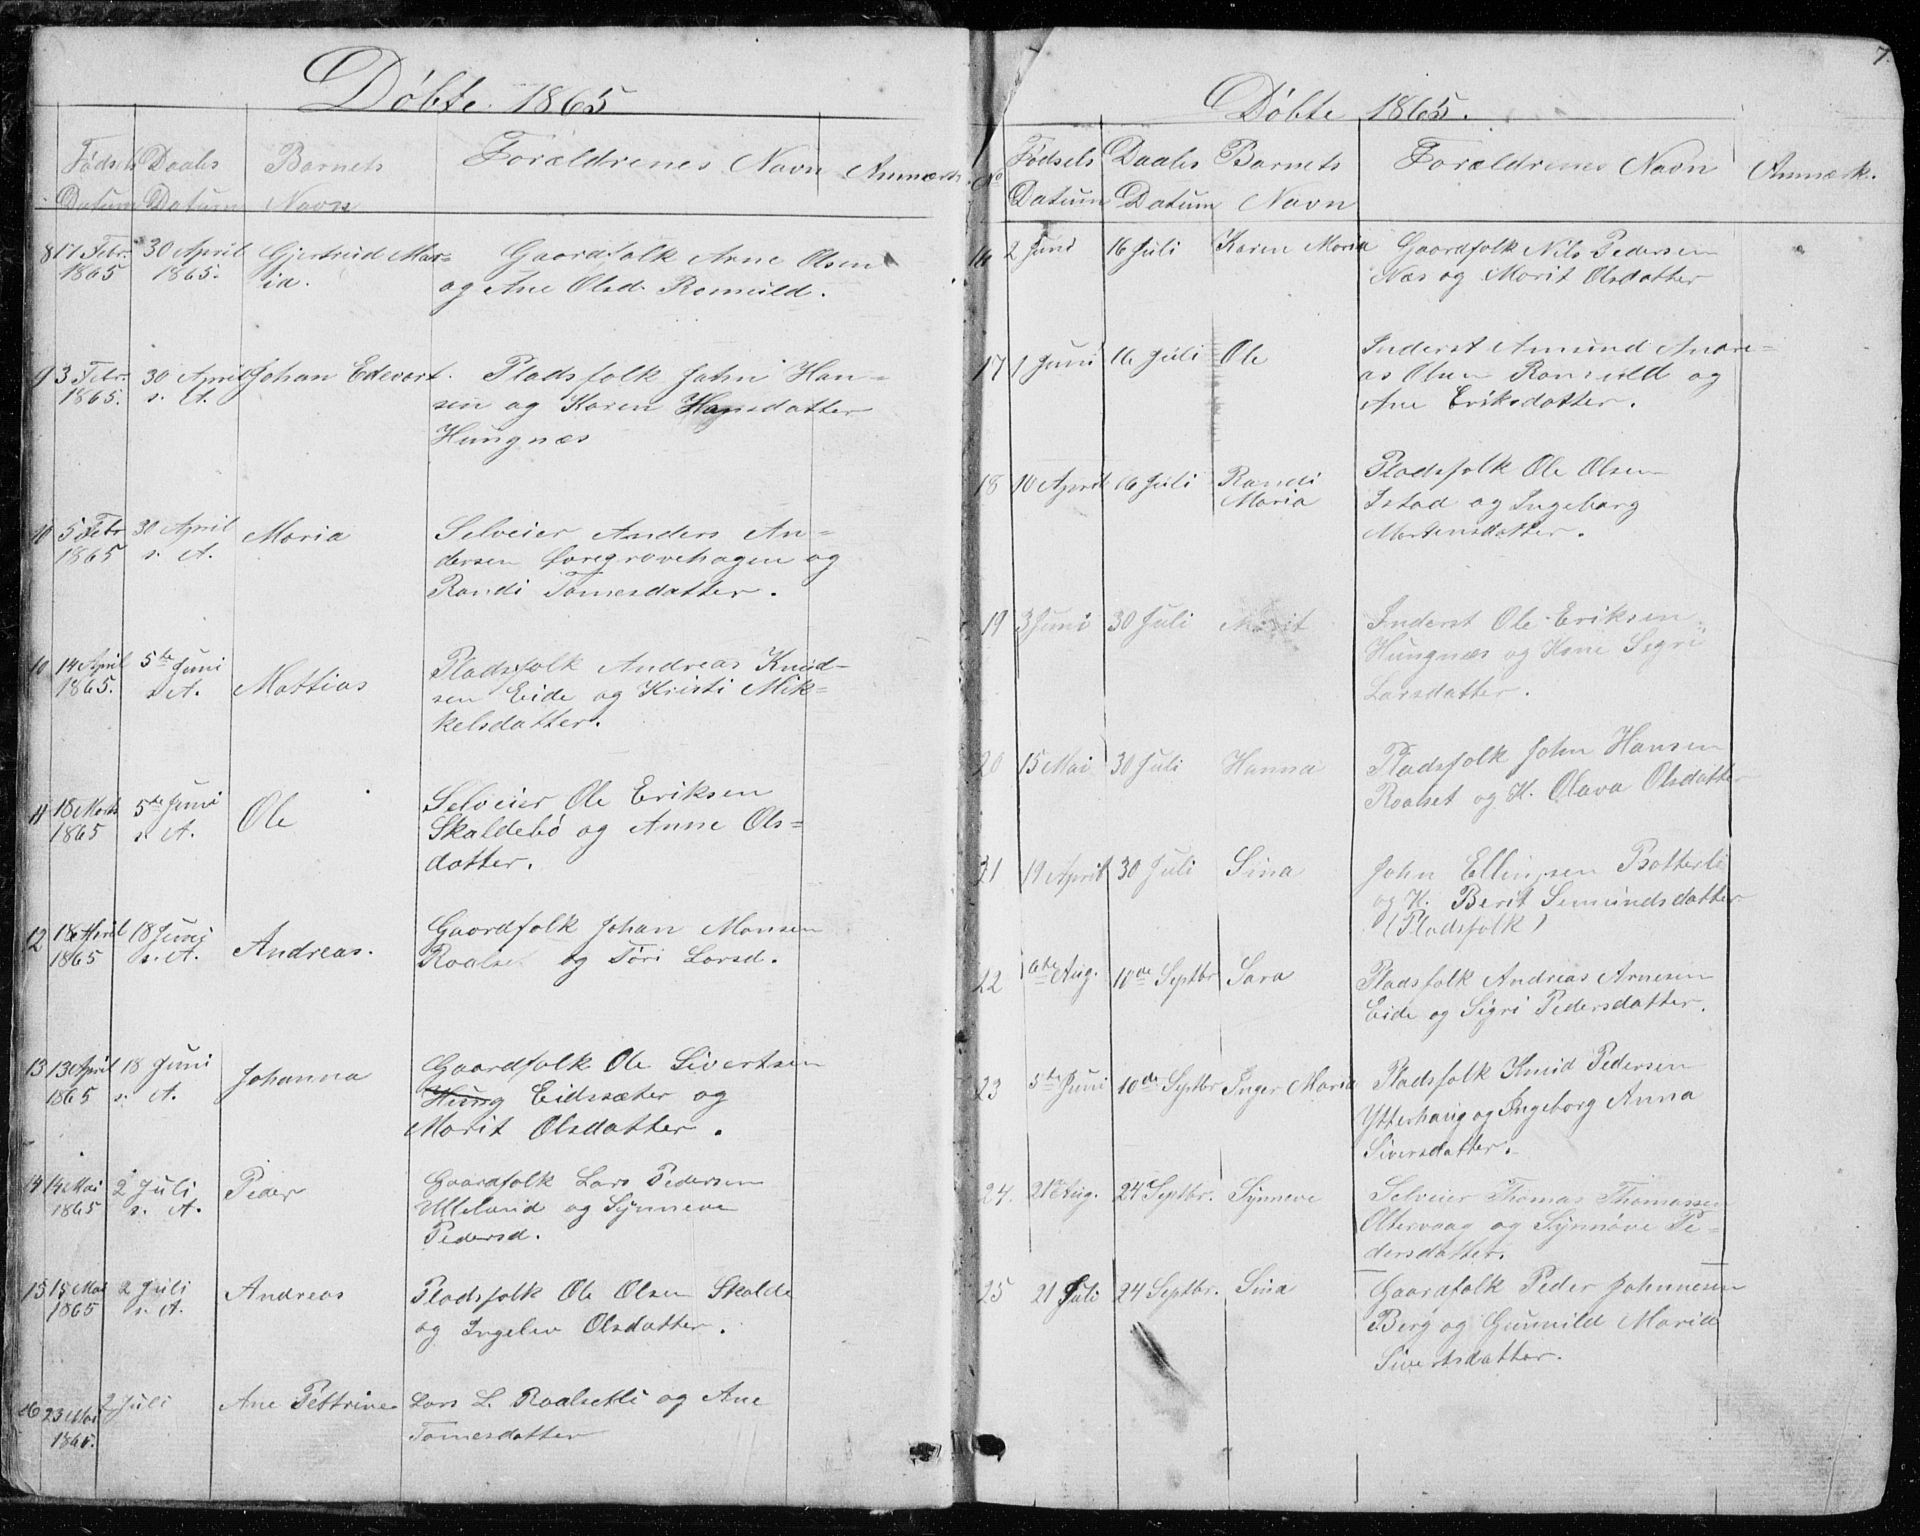 Døbte 1865
Fødsels Daabs Barnets Forældrenes Navn Anmærk.
Datum Datum Navn
8 17 Febr. 30 April Gjertrud Mar- Gaardfolk Arne Olsen
1865 1865. ia. og Ane Olsd. Romuld.
9 3 Febr. 30 April Johan Edevart. Pladsfolk John Han=
1865. s. A. sen og Karen Hansdatter
Hungnæs
10 5 Febr 30 April Maria Selveier Anders An=
1865 s. A. dersen Foregravehagen og
Randi Tomesdatter.
10 14 April 5te Juni Mattias Pladsfolk Andreas Knud-
1865. s A. sen Eide og Kristi Mik=
kelsdatter.
11 18 Marts 5te Juni Ole Selveier Ole Eriksen
1865 s. A. Skaldebø og Anne Ols=
datter.
12 18 April 18 Juni Andreas. Gaardfolk Johan Monsen
1865 s. A. Roalset og Töri Larsd.
13 13 April 18 Juni Johanna Gaardfolk Ole Sivertsen
1865 s. A. Hung Eidssæter og
Marit Olsdatter.
14 14 Mai 2 Juli Peder Gaardfolk Lars Pedersen
1865 s. A. Ulleland og Synneve
Pedersd.
15 15 Mai 2 Juli Andreas Pladsfolk Ole Olsen Skalde
1865 s. A. og Ingelev Olsdatter.
16 23 Mai 2 Juli Ane Pettrine Lars L. Roalsetli og Ane
1865. Tomesdatter
7.
Døbte 1865.
No Fødsels Daabs Barnets Forældrenes Navn Anmærk.
Datum Datum Navn
16 2 Juni 16 Juli Karen Maria Gaardfolk Nils Pedersen
Næs og Marit Olsdatter
17 1 Juni 16 Juli Ole Inderst Amund Andre-
as Olsen Romuld og
Ane Eriksdatter.
18 10 April 16 Juli Randi Pladsfolk Ole Olsen
Maria Istad og Ingeborg
Martensdatter.
19 3 Juni 30 Juli Marit Inderst Ole Eriksen
Hungnæs og Kone Sigri
Larsdatter.
20 15 Mai 30 Juli Hanna Pladsfolk John Hansen
Roalset og K. Olava Olsdatter
21 19 April 30 Juli Sina John Ellingsen
og K. Berit Semundsdatter
(Pladsfolk)
22 6te Aug. 10de Septbr Sara Pladsfolk Andreas Arnesen
Eide og Sigri Pedersdatter.
23 5te Juni 10de Septbr Inger Maria Pladsfolk Knud Pedersen
Ytterhaug og Ingeborg Anna
Siversdatter.
24. 21de Aug. 24 Septbr. Synneve Selveier Thomas Thomassen
Oltervaag og Synnøve Pe-
dersdatter.
25 21 Juli 24 Septbr. Sina Gaardfolk Peder Johnnesen
Berg og Gunnild Maria
Sivertsdatter.